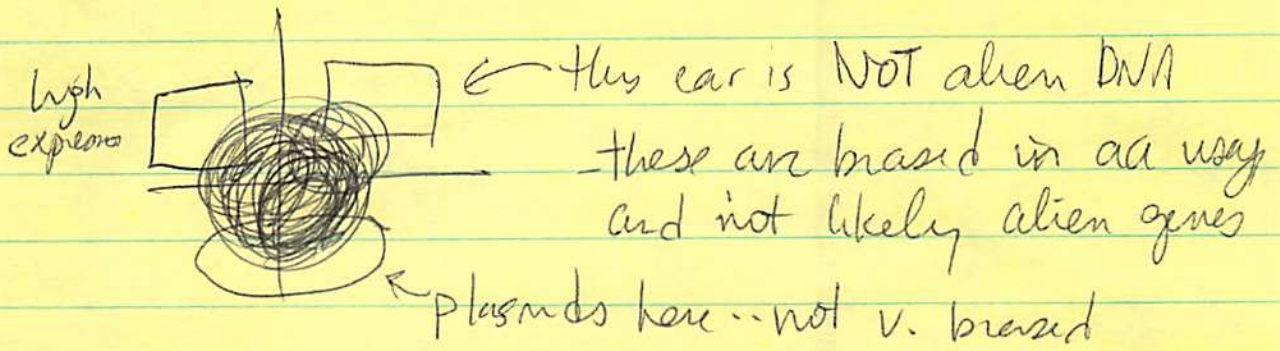 high
expression
this ear is NOT alien DNA
- these are biased in aa usage
and not likely alien genes
plasmids here .. not v. biased